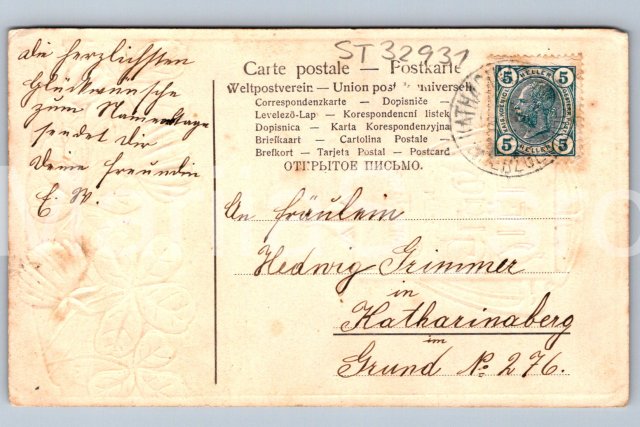 Die herzlichsten
Glückwünsche
zum Namenstage
sendet dir
Deine Freundin
E. W.
ST 32931
Carte postale — Postkarte
Weltpostverein — Union postale universelle
Correspondenzkarte – Dopisnice –
Levelező-Lap – Korespondencní listek
Dopisnica – Karta Korespondencyjna
Briefkaart – Cartolina Postale –
Brefkort – Tarjeta Postal – Postcard
ОТКРЫТОЕ ПИСЬМО.
5 HELLER 5
5 HELLER 5
KATHA
An Fräulein
Hedwig Grimmer
in
Katharinaberg
im
Grund No. 276.